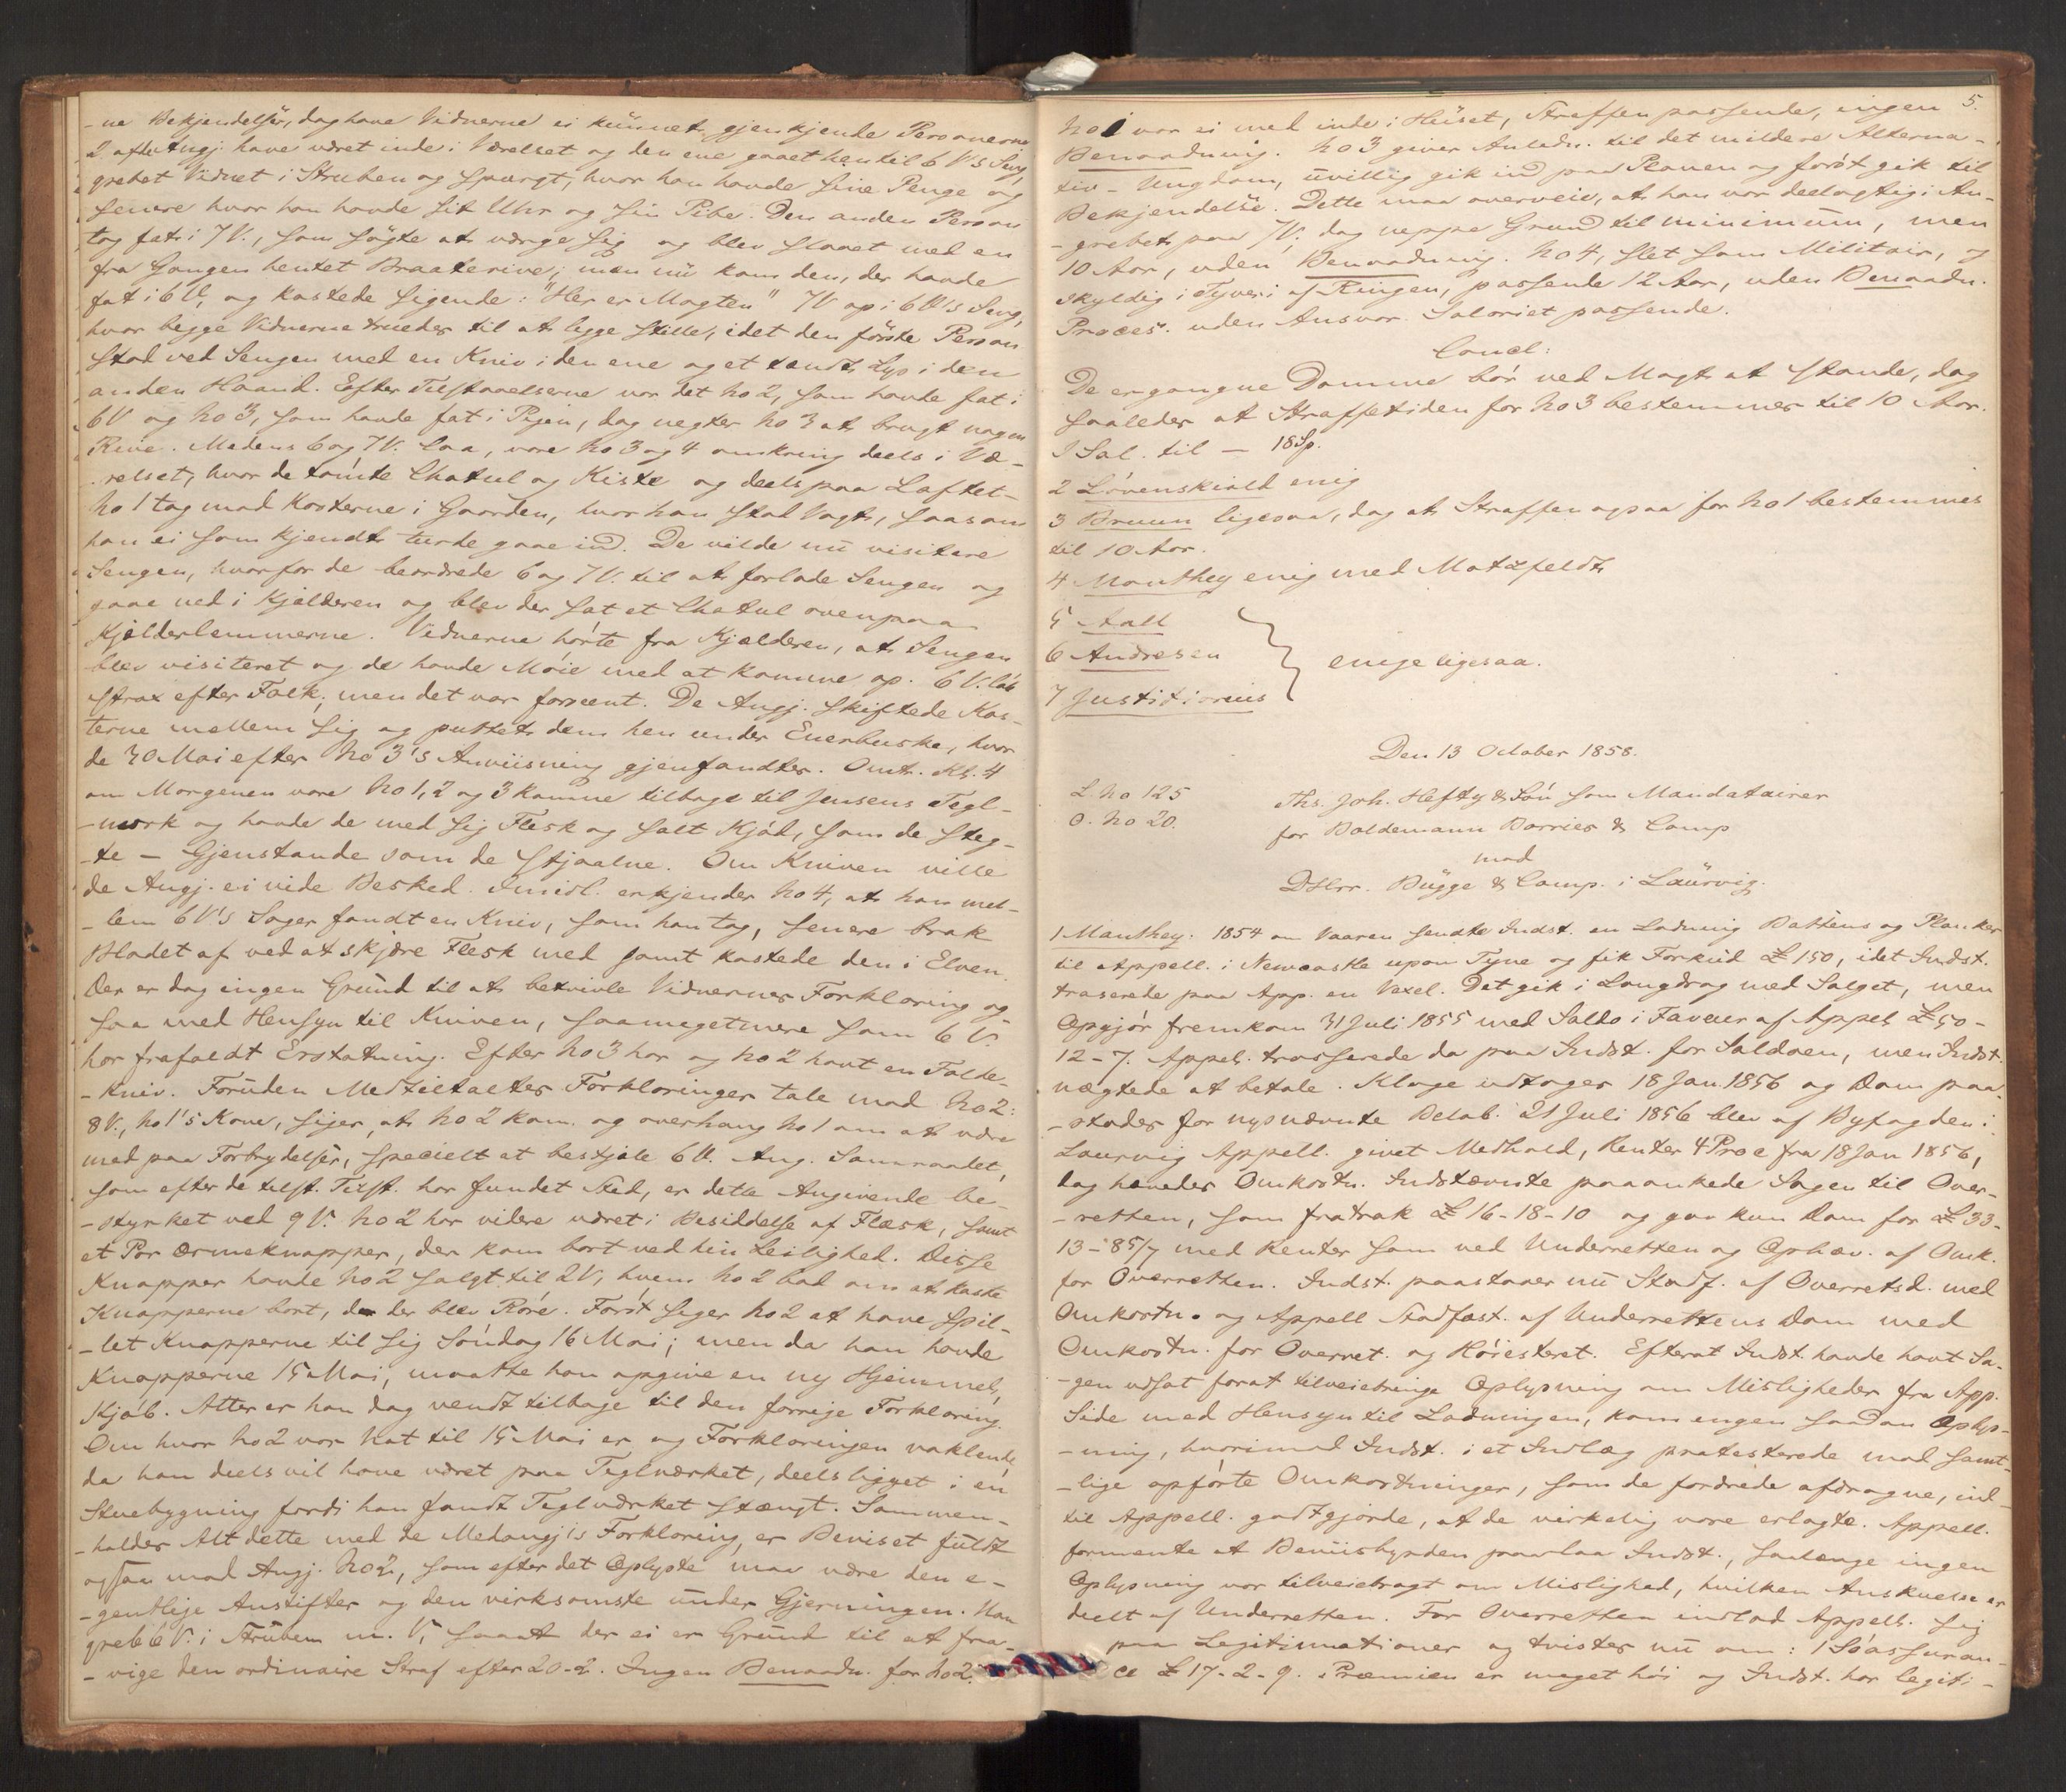 -ne Bekjendelser, dog have Vidnerne ei kunnet gjenkjende Personerne
2 af de Angj. have været inde i Værelset og den ene gaaet hen til 6 V's Seng,
grebet Vidnet i Struben og spurgt, hvor han havde sine Penge og
senere hvor han havde sit Uhr og sin Pibe. Den anden Person
tog fat i 7 V., som søgte at værge sig og blev slaaet med en
fra Gangen hentet Braaterive; men nu kom den, der havde
fat i 6 V, og kastede sigende: "Her er Magten" 7V op i 6 V's Seng,
hvor begge Vidnerne truedes til at ligge stille, idet den første Person
stod ved Sengen med en Kniv i den ene og et tændt Lys i den
anden Haand. Efter Tilstaaelserne var det No 2, som havde fat i
6V og No 3, som havde fat i Pigen, dog negter No 3 at brugt nogen
Rive. Medens 6 og 7 V. laa, vare No 3 og 4 omkring deels i Væ-
relset, hvor de tømte Chatul og Kiste og deels paa Loftet-
No 1 tog mod Kosterne i Gaarden, hvor han stod Vagt, saasom
han ei som kjendt turde gaae ind. De vilde nu visitere
Sengen, hvorfor de beordrede 6 og 7 V. til at forlade Sengen og
gaae ned i Kjelderen og blev der sat et Chatul ovenpaa
Kjelderlemmerne. Vidnerne hørte fra Kjælderen, at Sengen
blev visiteret og de havde Møie med at komme op. 6 V. løb
strax efter Folk; men det var forseent. De Angj. skiftede Kos-
terne mellem sig og puttet dem hen under Enerbuske, hvor
de 30 Mai efter No 3's Anviisning gjenfandtes. Omtr. Kl. 4
om Morgenen vare No 1, 2 og 3 komne tilbage til Jensens Tegl-
-værk og havde de med sig Flesk og salt Kjød, som de steg-
-te - Gjenstande som de stjaalne. Om Kniven ville
de Angj. ei vide Besked. Imidl. erkjender No 4, at han mel-
-lem 6 V's Sager fandt en Kniv, som han tog, senere brak
Bladet af ved at skjære Flesk med samt kastede den i Elven.
Der er dog ingen Grund til at betvivle Vidnernes Forklaring og-
saa med Hensyn til Kniven, saameget mere som 6 V.
har frafaldt Erstatning. Efter No 3 har og No 2 havt en Folde-
-kniv. Foruden Medtiltaltes Forklaringer tale mod No 2:
8 V., No 1's Kone, siger, at No 2 kom og overhang No 1 om at være
med paa Forbrydelser, specielt at bestjæle 6 V. Ang. Samraadet,
som efter de tilst. Tilst. har fundet Sted, er dette Angivende be-
-styrket ved 9 V. No 2 har videre været i Besiddelse af Flæsk, samt
et Par Ærmeknapper, der kom bort ved hin Leilighed. Disse
Knapper havde No 2 solgt til 2 V, hvem No 2 bad om at kaste
Knapperne bort, da der blev Røre. Først siger No 2 at have spil-
-let Knapperne til sig Søndag 16 Mai; men da han havde
Knapperne 15 Mai, maatte han opgive en ny Hjemmel,
Kjøb. Atter er han dog vendt tilbage til den forrige Forklaring.
Om hvor No 2 var Nat til 15 Mai er og Forklaringen vaklende,
da han deels vil have været paa Teglværket, deels ligget i en
Stuebygning fordi han fandt Teglværket stængt. Sammen-
-holdes Alt dette med de Medangj's Forklaring, er Beviset fuldt
ogsaa mod Angj. No 2, som efter det Oplyste maa være den e-
-gentlige Anstifter og den virksomste under Gjerningen. Han
greb 6 V. i Struben m. V, saaat der ei er Grund til at fra-
-vige den ordinaire Straf efter 20-2. Ingen Benaadn. for No 2.
5.
No 1 var ei med inde i Huset, Straffen passende, ingen
Benaadning. No 3 giver Anledn. til det mildere Alterna-
tiv - Ungdom, uvillig gik ind paa Planen og først gik til
Bekjendelse. Dette maa overveie, at han var deelagtig i An-
-grebet paa 7V. dog neppe Grund til minimum, men
10 Aar, uden Benaadning. No 4, slet som Militair, og
skyldig i Tyveri af Ringen, passende 12 Aar, uden Benaadn.
Proces. uden Ansvar. Salariet passende.
Concl:
De ergangne Domme bør ved Magt at stande, dog
saaledes at Straffetiden for No 3 bestemmes til 10 Aar.
Sal. til - 18 Sp.
2 Løvenskiold enig
3 Bruun ligesaa, dog at Straffen ogsaa for No 1 bestemmes
til 10 Aar.
4 Manthey enig med Motzfeldt
5 Aall
6 Andresen enige ligesaa.
7 Justitiarius
Den 13 October 1858.
L. No 125 Ths. Joh. Heftye & Søn som Mandatairer
O. No 20. for Boldemann Borries & Comp
mod
DHrr. Bügge & Comp. i Laürvig.
1 Manthey. 1854 om Vaaren sendte Indst. en Ladning Battens og Planker
til Appell. i Newcastle upon Tyne og fik Forskud £ 150, idet Indst.
traserede paa App. en Vexel. Det gik i Langdrag med Salget, men
Opgjør fremkom 31 Juli 1855 med Saldo i Faveur af Appel. £ 50-
12-7. Appel. trasserede da paa Indst. for Saldoen, men Indst.
nægtede at betale. Klage udtoges 18 Jan. 1856 og Dom paa-
-stodes for nysnævnte Beløb. 21 Juli 1856 blev af Byfogden i
Laurvig Appell. givet Medhold, Renter 4 Proc fra 18 Jan 1856,
dog hæves Omkostn. Indstævnte paaankede Sagen til Over-
-retten, som fratrak £ 16-18-10 og gav kun Dom for £ 33-
13-8 5/7 med Renter som ved Underretten og Ophæv. af Omk.
for Overretten. Indst. paastaaer nu Stadf. af Overretsd. med
Omkostn. og Appell Stadfæst. af Underrettens Dom med
Omkostn. for Overret. og Høiesteret. Efterat Indst. havde havt Sa-
-gen udsat forat tilveiebringe Oplysning om Misligheder fra App.
Side med Hensyn til Ladningen, kom ingen saadan Oplys-
-ning, hvorimod Indst. i et Indlæg protesterede mod samt-
-lige opførte Omkostninger, som de fordrede afdragne, ind-
til Appell. godtgjorde, at de virkelig vare erlagte. Appell.
formente at Beviisbyrden paalaa Indst., saalænge ingen
Oplysning var tilveiebragt om Mislighed, hvilken Anskuelse er
deelt af Underretten. For Overretten indlod Appell. sig
paa Legitimationer og tvistes nu om: 1 Søassuran-
ce £ 17-2-9. Præmien er meget høi og Indst. har legiti-